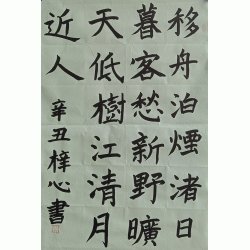 移舟泊煙渚日
暮客愁新野曠
天低樹江清月
近人
辛丑梓心書